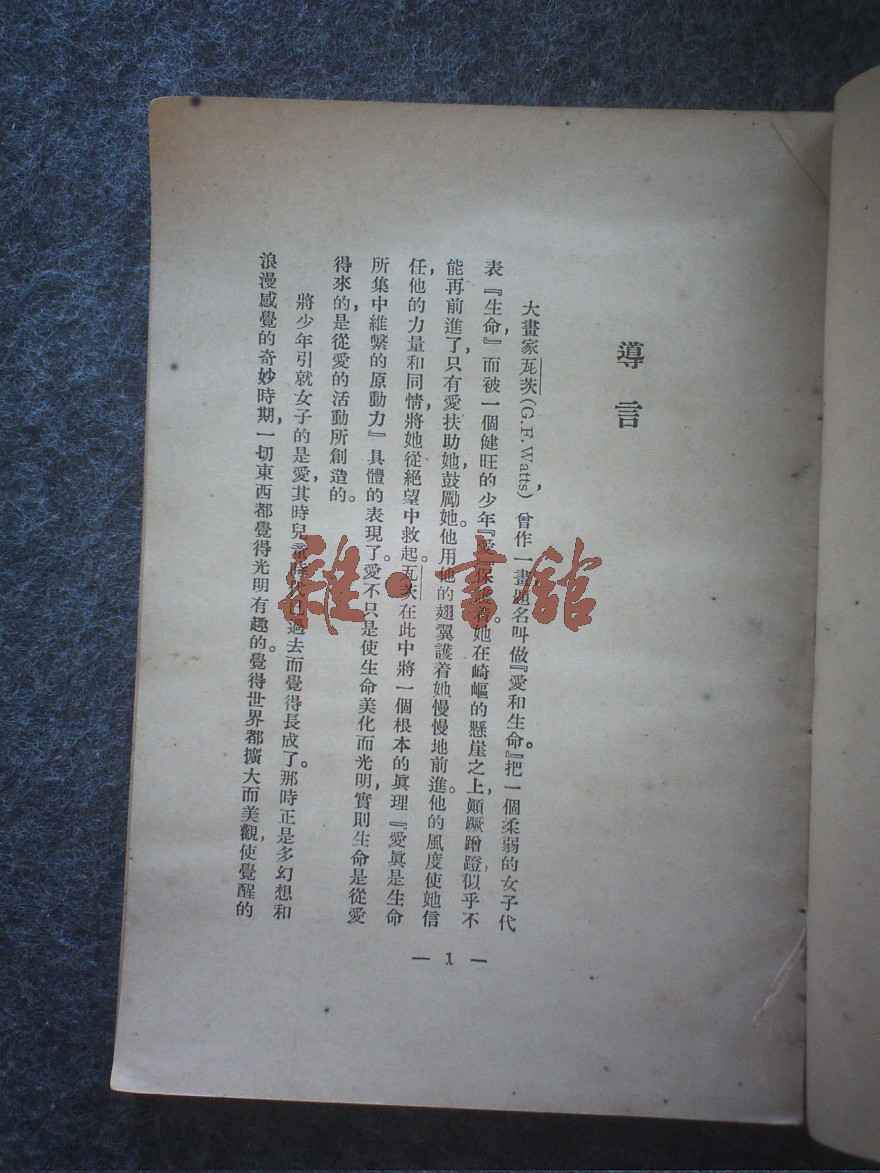 導言
大畫家瓦茨(G.F. Watts),曾作一畫題名叫做『愛和生命。』把一個柔弱的女子代
表『生命,』而被一個健旺的少年『愛』保護着。她在崎嶇的懸崖之上,顛蹶蹭蹬,似乎不
能再前進了,只有愛扶助她,鼓勵她。他用他的翅翼護着她,慢慢地前進。他的風度使她信
任,他的力量和同情,將她從絕望中救起。瓦茨在此中將一個根本的眞理『愛眞是生命
所集中維繫的原動力』具體的表現了。愛不只是使生命美化而光明,實則生命是從愛
得來的,是從愛的活動所創造的。
將少年引就女子的是愛,其時兒童時代已過去而覺得長成了。那時正是多幻想和
浪漫感覺的奇妙時期,一切東西都覺得光明有趣的。覺得世界都擴大而美觀,使覺醒的
— 1 —
雜·書館